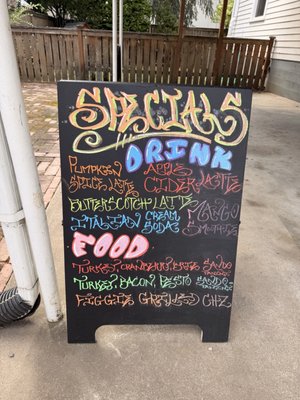 SPECIALS
DRINK
PUMPKIN SPICE LATTE
APPLE CIDER LATTE
BUTTERSCOTCH LATTE
MANGO SMOOTHIE
ITALIAN CREAM SODA
FOOD
TURKEY, CRANBERRY, BRIE SANDO
TURKEY, BACON, PESTO SANDO
GRILLED CHZ